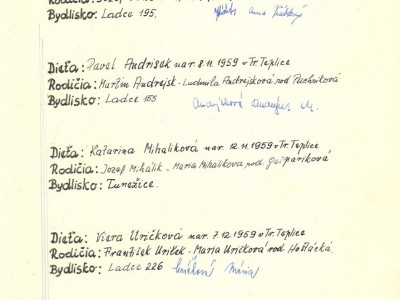 Bydlisko: Ladce 195.
Dieťa: Pavel Andrisek nar. 8.11.1959 v Tr. Teplice
Rodičia: Martin Andrejsk - Ludmila Andrejsková rod Puchníková
Bydlisko: Ladce 165
Dieťa: Katarína Mihaliková nar. 12.11.1959 v Tr. Teplice
Rodičia: Jozef Mihálik - Maria Mihaliková rod. Gašparíková
Bydlisko: Tunežice.
Dieťa: Viera Uričková nar. 7.12.1959 v Tr. Teplice
Rodičia: František Uriček - Maria Uričková rod Hoštácká
Bydlisko: Ladce 226